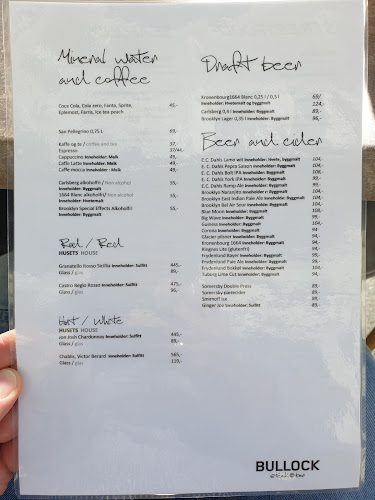 Mineral water
and coffee
Coca Cola, Cola zero, Fanta, Sprite, 45,-
Eplemost, Farris, Ice tea peach
San Pellegrino 0,75 L 89,-
Kaffe og te / coffee and tea 37,-
Espresso 37/44,-
Cappuccino Inneholder: Melk 45,-
Caffe Latte Inneholder: Melk 49,-
Caffe mocca Inneholder: Melk 49,-
Carlsberg alkoholfri / Non alcohol 55,-
Inneholder: Byggmalt
1664 Blanc alkoholfri / Non alcohol 55,-
Inneholder: Hvetemalt
Brooklyn Special Effects Alkoholfri 55,-
Inneholder: Byggmalt
Rød / Red
HUSETS HOUSE
Granatello Rosso Sicilia Inneholder: Sulfitt 445,-
Glass / glas 89,-
Castro Regio Rosso Inneholder: Sulfitt 475,-
Glass / glas 96,-
Hvit / White
HUSETS HOUSE
Jan Josh Chardonnay Inneholder: Sulfitt 445,-
Glass / glas 89,-
Chablis, Victor Berard Inneholder: Sulfitt 565,-
Glass / glas 119,-
Draft beer
Kronenbourg1664 Blanc 0,25 l / 0,5 l 69/
Inneholder: Hvetemalt og byggmalt 124,-
Carlsberg 0,4 l Inneholder: Byggmalt 89,-
Brooklyn Lager 0,35 l Inneholder: Byggmalt 96,-
Beer and cider
E.C. Dahls Lemo wit Inneholder: Hvete, byggmalt 104,-
E.C. Dahls Pepsa Saison Inneholder: Byggmalt 104,-
E.C. Dahls Bolt IPA Inneholder: Byggmalt 109,-
E.C. Dahls York IPA Inneholder: Byggmalt 99,-
E.C. Dahls Ramp Ale Inneholder: Byggmalt 99,-
Brooklyn Naranjito Inneholder: Byggmalt 104,-
Brooklyn East Indian Pale Ale Inneholder: Byggmalt 104,-
Brooklyn Bel Air Sour Inneholder: Byggmalt 104,-
Blue Moon Inneholder: Byggmalt 109,-
Big Wave Inneholder: Byggmalt 99,-
Guiness Inneholder: Byggmalt 104,-
Corona Inneholder: Byggmalt 94,-
Glacier pilsner Inneholder: Byggmalt 94,-
Kronenbourg 1664 Inneholder: Byggmalt 94,-
Ringnes Lite (glutenfri) 94,-
Frydenlund Bayer Inneholder: Byggmalt 99,-
Frydenlund Pale Ale Inneholder: Byggmalt 99,-
Frydenlund bokkøl Inneholder: Byggmalt 104,-
Tuborg Lime Cut Inneholder: Byggmalt 94,-
Somersby Double Press 89,-
Somersby pærecider 89,-
Smirnoff Ice 89,-
Ginger Joe Inneholder: Sulfitt 89,-
BULLOCK